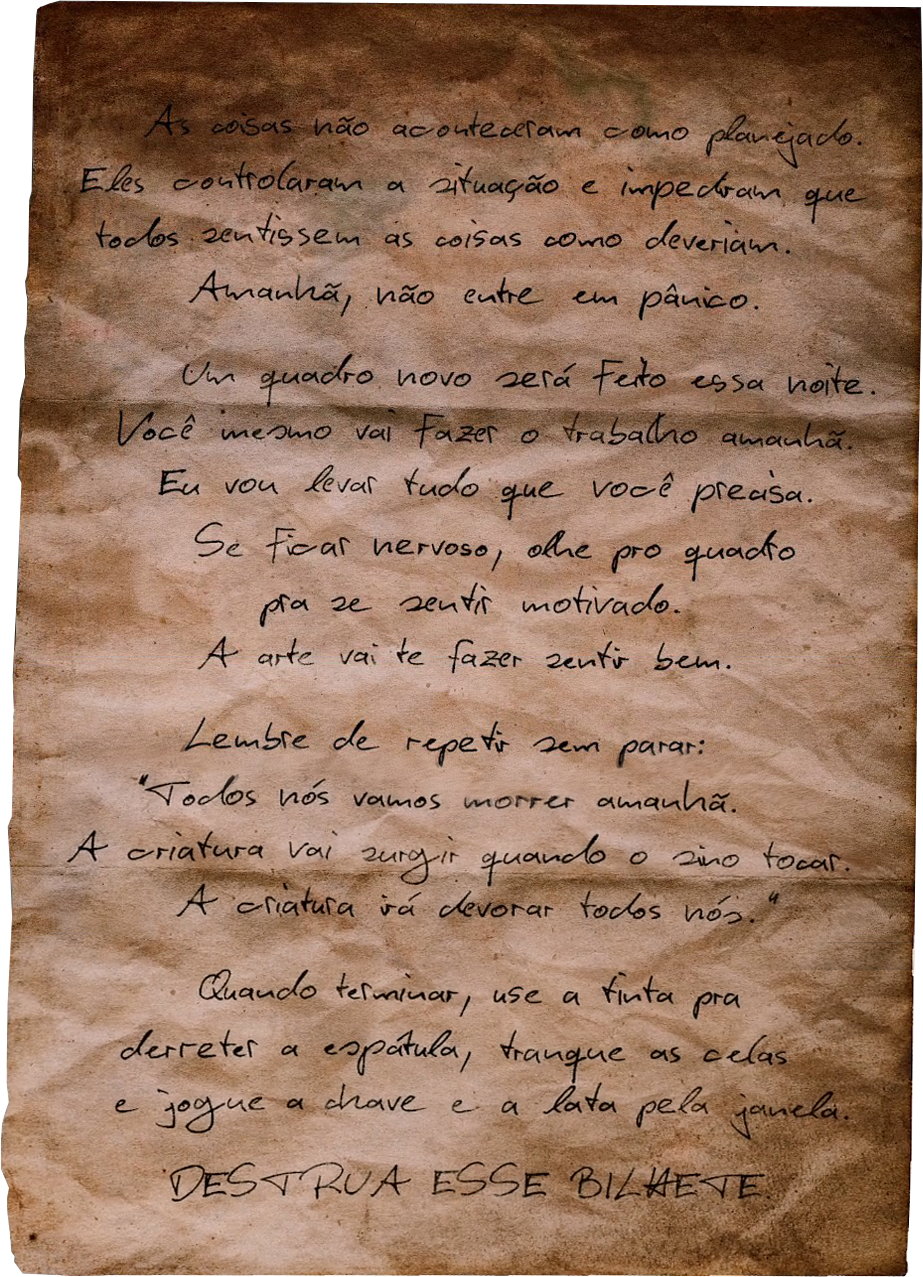 As coisas não aconteceram como planejado.
Eles controlaram a situação e impediram que
todos sentissem as coisas como deveriam.
Amanhã, não entre em pânico.
Um quadro novo será feito essa noite.
Você mesmo vai fazer o trabalho amanhã.
Eu vou levar tudo que você precisa.
Se ficar nervoso, olhe pro quadro
pra se sentir motivado.
A arte vai te fazer sentir bem.
Lembre de repetir sem parar:
"Todos nós vamos morrer amanhã.
A criatura vai surgir quando o sino tocar.
A criatura irá devorar todos nós."
Quando terminar, use a tinta pra
derreter a espátula, tranque as celas
e jogue a chave e a lata pela janela.
DESTRUA ESSE BILHETE